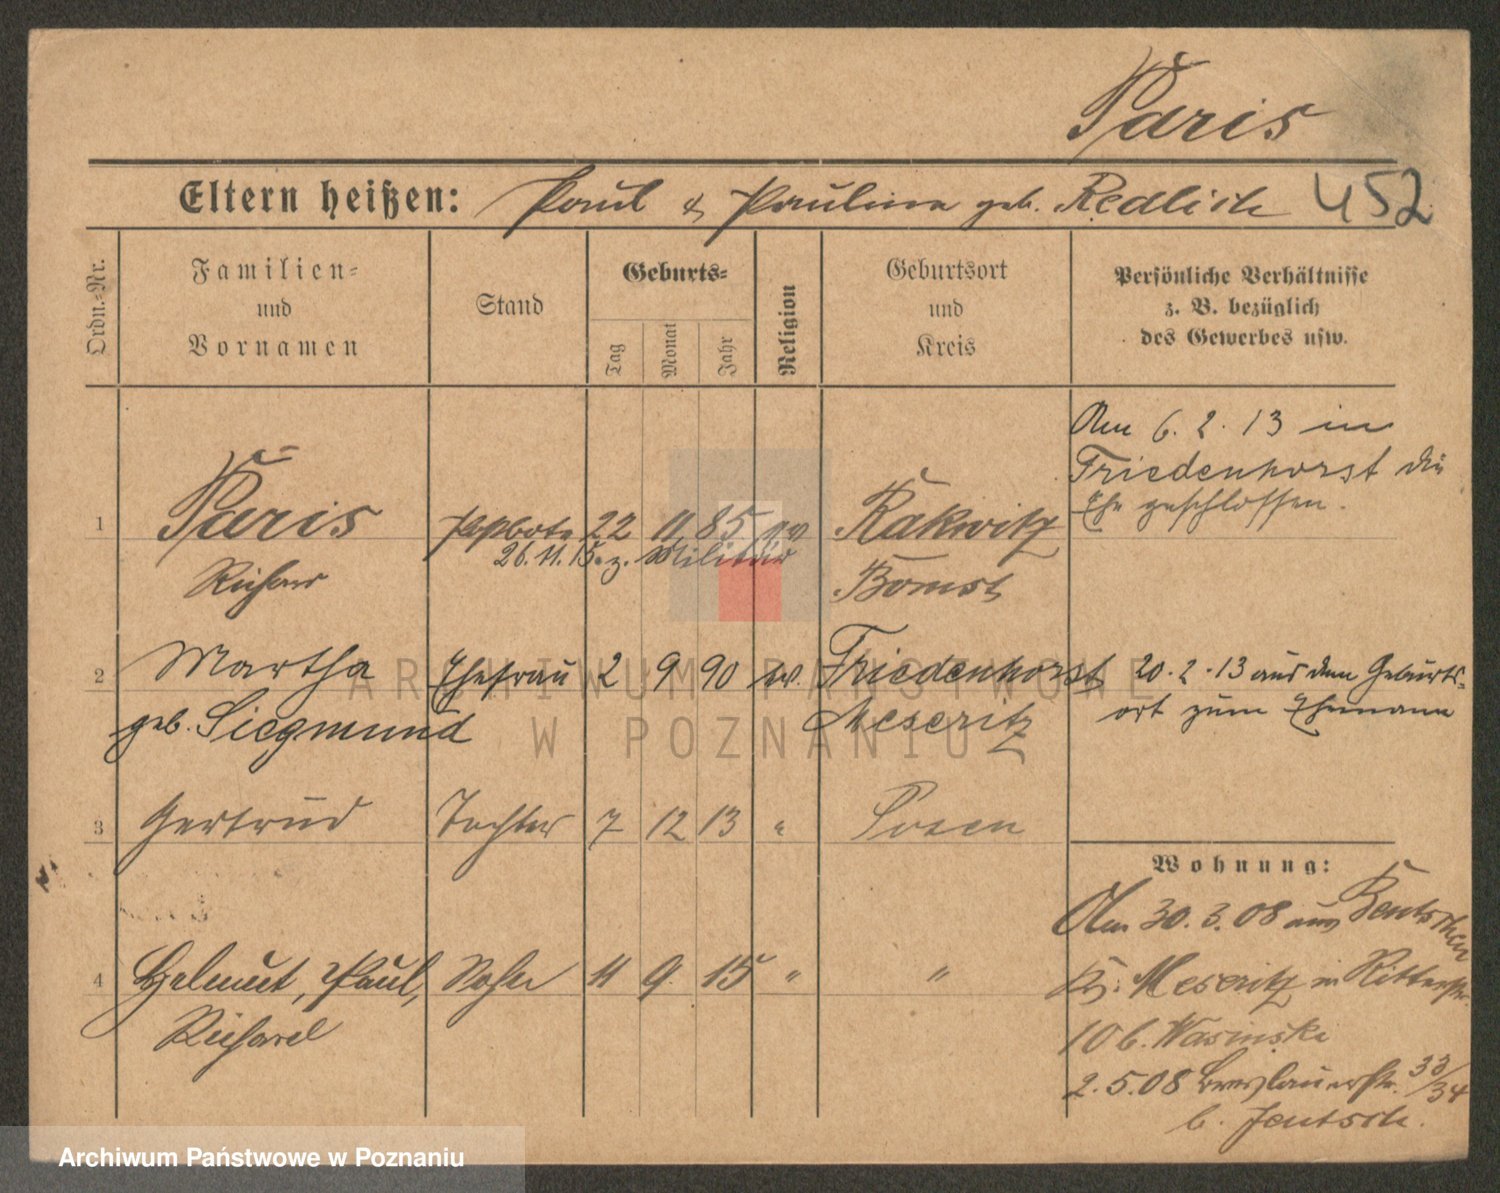 Paris
Eltern heißen: Paul & Pauline geb. Redlich 452
Ordn.-Nr.
Familien-
und
Vornamen
Stand
Geburts-
Tag
Monat
Jahr
Religion
Geburtsort
und
Kreis
Persönliche Verhältnisse
z. B. bezüglich
des Gewerbes usw.
Am 6. 2. 13 in
Friedenhorst die
Ehe geschlossen.
1 Paris Postbote 22 11 85 ev Rakwitz
26.11.15. z. Militär
Richard Bomst
2 Martha Ehefrau 2 9 90 ev. Friedenhorst 20. 2. 13 aus dem Geburts-
geb. Siegmund Meseritz ort zum Ehemann
3 Gertrud Tochter 7 12 13 " Posen
Wohnung:
Am 30. 3. 08 aus Bentschen
4 Helmut, Paul, Sohn 11 9. 15 " " Kr. Meseritz in Ritterstr.
Richard
10 b. Wasinski
2. 5. 08 Breslauerstr. 33/34
b. Jentsch.
ARCHIWUM PAŃSTWOWE
W POZNANIU
Archiwum Państwowe w Poznaniu